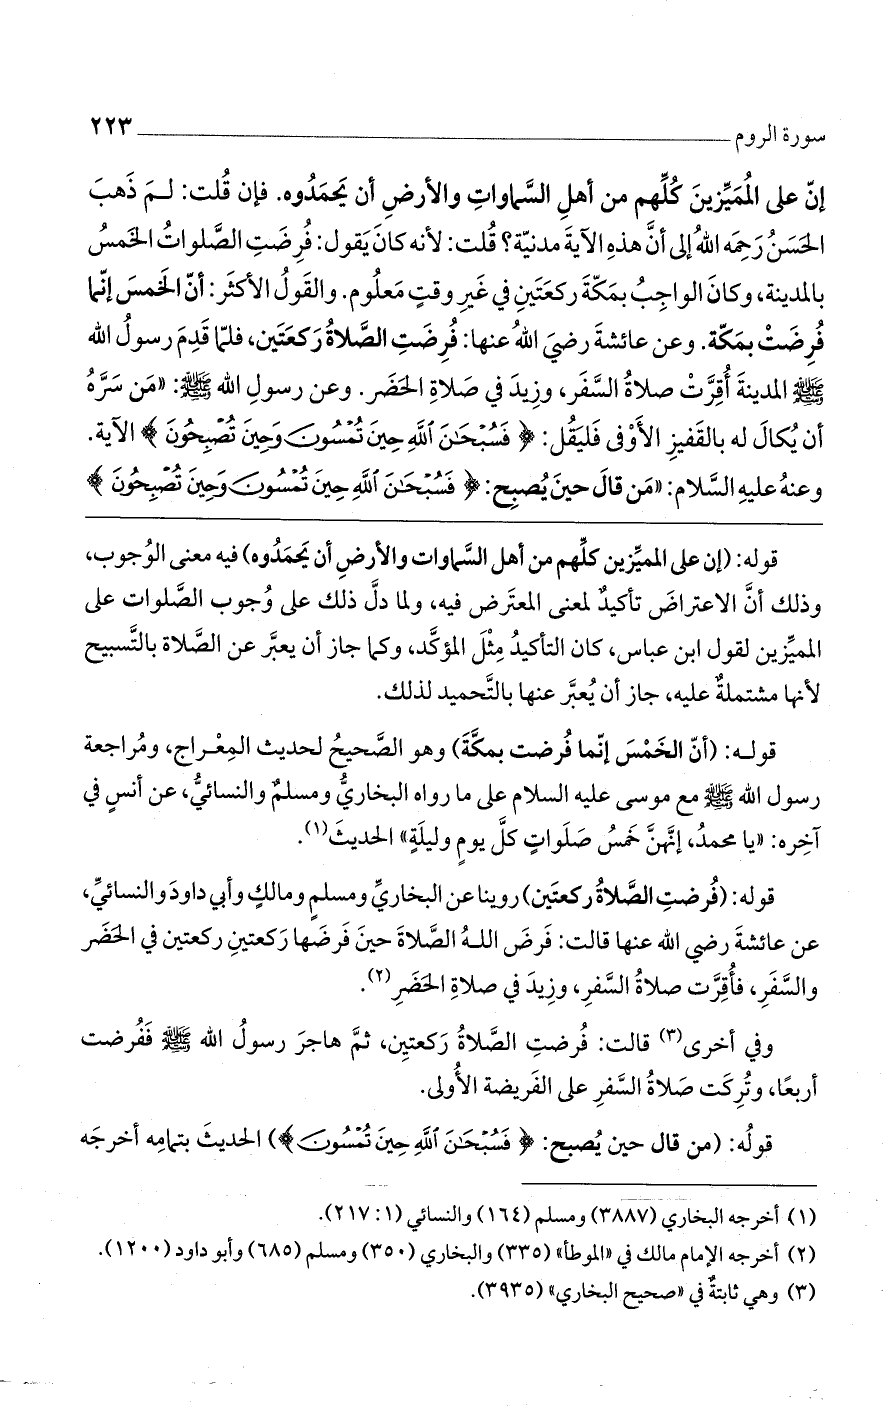 سورة الروم ٢٢٣
إنّ على المُمَيِّزينَ كُلِّهم من أهلِ السَّماواتِ والأرضِ أن يَحمَدُوه. فإن قُلت: لـمَ ذَهبَ
الحَسَنُ رَحِمَه اللهُ إلى أنَّ هذهِ الآيةَ مدنيّة؟ قُلت: لأنه كانَ يَقول: فُرِضَتِ الصَّلواتُ الخَمسُ
بالمدينة، وكانَ الواجِبُ بمَكّةَ ركعَتَينِ في غَيرِ وقتٍ مَعلُوم. والقَولُ الأكثَر: أنّ الخَمسَ إنّما
فُرِضَتْ بمَكّة. وعن عائشةَ رضيَ اللهُ عنها: فُرِضَتِ الصَّلاةُ رَكعَتَين، فلمّا قَدِمَ رسولُ الله
ﷺ المدينةَ أُقِرَّتْ صلاةُ السَّفَر، وزِيدَ في صَلاةِ الحَضَر. وعن رسولِ الله ﷺ: «مَن سَرَّهُ
أن يُكالَ له بالقَفيزِ الأَوفى فَليَقُل: ﴿ فَسُبْحَٰنَ ٱللَّهِ حِينَ تُمْسُونَ وَحِينَ تُصْبِحُونَ ﴾ الآية.
وعنهُ عليهِ السَّلام: «مَنْ قالَ حينَ يُصبِح: ﴿ فَسُبْحَٰنَ ٱللَّهِ حِينَ تُمْسُونَ وَحِينَ تُصْبِحُونَ ﴾
قوله: (إن على المميِّزين كلِّهم من أهل السَّماوات والأرضِ أن يَحمَدُوه) فيه معنى الوُجوب،
وذلك أنَّ الاعتراضَ تأكيدٌ لمعنى المعتَرض فيه، ولما دلَّ ذلك على وُجوب الصَّلوات على
المميِّزين لقول ابن عباس، كان التأكيدُ مِثْلَ المؤكَّد، وكما جاز أن يعبَّر عن الصَّلاة بالتَّسبيح
لأنها مشتملةٌ عليه، جاز أن يُعبَّر عنها بالتَّحميد لذلك.
قولـه: (أنّ الخَمْسَ إنّما فُرضت بمكَّةَ) وهو الصَّحيحُ لحديث المِعْـراج، ومُراجعة
رسول الله ﷺ مع موسى عليه السلام على ما رواه البخاريُّ ومسلمٌ والنسائيُّ، عن أنسٍ في
آخِره: «يا محمدُ، إنَّهنَّ خَمسُ صَلَواتٍ كلَّ يومٍ وليلَةٍ» الحديثَ(١).
قوله: (فُرضتِ الصَّلاةُ ركعتَين) روينا عن البخاريِّ ومسلمٍ ومالكٍ وأبي داودَ والنسائيِّ،
عن عائشةَ رضي الله عنها قالت: فَرضَ اللـهُ الصَّلاةَ حينَ فَرضَها رَكعتَينِ ركعتين في الحَضَر
والسَّفَرِ، فأُقِرَّت صلاةُ السَّفرِ، وزِيدَ في صلاةِ الحَضَرِ(٢).
وفي أخرى(٣) قالت: فُرضتِ الصَّلاةُ رَكعتينِ، ثمَّ هاجرَ رسولُ الله ﷺ فَفُرضت
أربعًا، وتُرِكَت صَلاةُ السَّفرِ على الفَريضة الأُولى.
قولُه: (من قال حين يُصبح: ﴿ فَسُبْحَٰنَ ٱللَّهِ حِينَ تُمْسُونَ ﴾) الحديثَ بتمامِه أخرجَه
(١) أخرجه البخاري (٣٨٨٧) ومسلم (١٦٤) والنسائي (١: ٢١٧).
(٢) أخرجه الإمام مالك في «الموطأ» (٣٣٥) والبخاري (٣٥٠) ومسلم (٦٨٥) وأبو داود (١٢٠٠).
(٣) وهي ثابتةٌ في «صحيح البخاري» (٣٩٣٥).